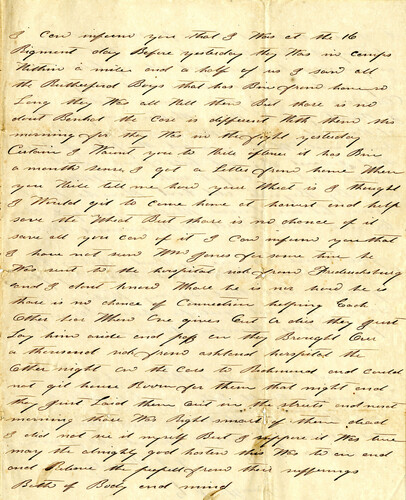 I Can inform you that I Was at the 16
Rigment day Before yesterday they Was in camps
Within a mile and a half of us I saw all
the Rutherford Boys that has Bin from home so
Long they Was all Well then But thare is no
dout But the Case is different With them this
morning for they Was in the fight yesterday
Certain I Waunt you to Write oftener it has Bin
a month sence I got a Letter from home When
you Write tell me how your Wheat is I thought
I Would git to Come home at harvest and help
save the Wheat But thare is no chance of it
save all you can of it I Can inform you that
I have not seen Wm Jones for some time he
Was sent to the hospital from Fredericksburg
and I dont know Whare he is nor how he is
thare is no chance of Connection helping Each
Other har When One gives Out & dies they Just
Lay him aside and pass on they Brought Over
a thousand from ashland hospital the
Other night on the Cars to Richmond and could
not git house Room for them that night and
they Just Laid them out in the streets and next
morning thare Was Right smart of them dead
I did not see it myself But I suppose it Was true
may the almighty god hasten this War to an end
and Releave the people from their sufferings
Both of Body and mind